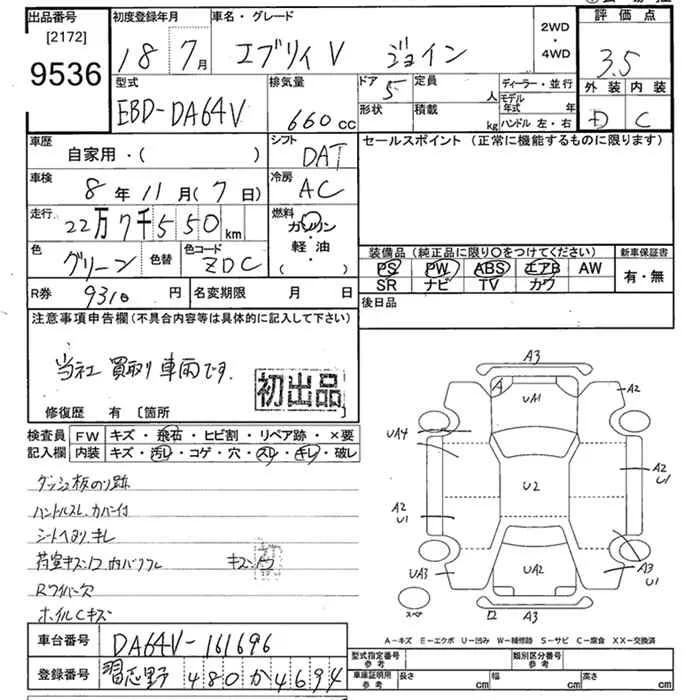 出品番号
[2172]
9536
初度登録年月
18 7月
車名・グレード
エブリィ V ジョイン
2WD
・
4WD
評価点
3.5
外装 内装
D C
型式
EBD-DA64V
排気量
660cc
ドア 5
形状
定員 人
積載 kg
ディーラー・並行
モデル年式 年
ハンドル 左・右
車歴
自家用・( )
シフト
DAT
車検
8年11月(7日)
冷房
AC
走行
22万7千550km
燃料
ガソリン
軽油
( )
色
グリーン
色替
色コード
ZDC
R券 9310円
名変期限 月 日
セールスポイント (正常に機能するものに限ります)
装備品 (純正品に限り〇をつけてください)
PS PW ABS エアB AW
SR ナビ TV カワ
新車保証書
有・無
後日品
注意事項申告欄(不具合内容等は具体的に記入して下さい)
当社買取り車両です.
初出品
修復歴 有 [箇所
検査員記入欄
FW キズ・飛石・ヒビ割・リペア跡・×要
内装 キズ・汚レ・コゲ・穴・スレ・キレ・破レ
ダッシュ板のり跡
ハンドルスレ、カバー付
シートヘタリキレ
Rワイパー欠
ホイルCキズ
A3
A
UA1
A2
UA4
A2
U1
U2
A2
U1
UA3
UA2
A3
U1
スペア
A3
A-キズ E-エクボ U-凹み W-補修跡 S-サビ C-腐食 XX-交換済
車台番号
DA64V-161696
登録番号
習志野 480 か 4694
型式指定番号
参考
類別区分番号
参考
車庫証明用
参考
長さ cm
幅 cm
高さ cm